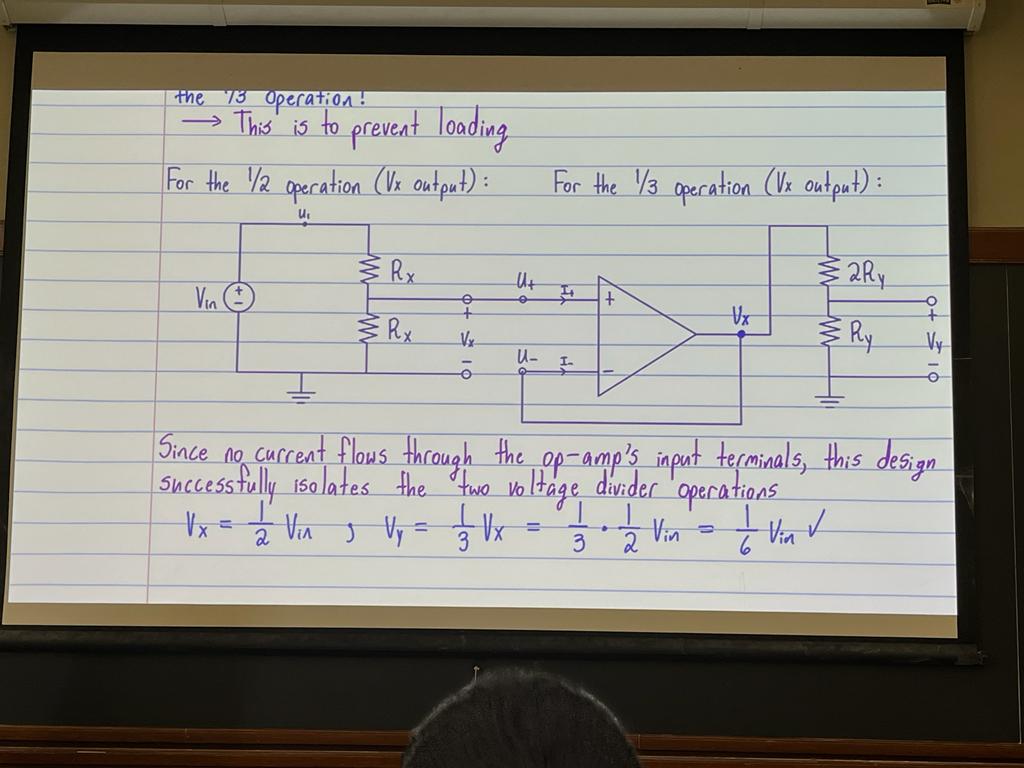 the 1/3 operation!
→ This is to prevent loading
For the 1/2 operation (Vx output): For the 1/3 operation (Vx output):
u₁
Rx
2Ry
U+ I+
+
Vin
+
−
Rx
+
Vx
−
Vx
Ry
+
Vy
−
U− I−
−
Since no current flows through the op-amp's input terminals, this design
successfully isolates the two voltage divider operations
Vx = 1/2 Vin , Vy = 1/3 Vx = 1/3 · 1/2 Vin = 1/6 Vin ✓